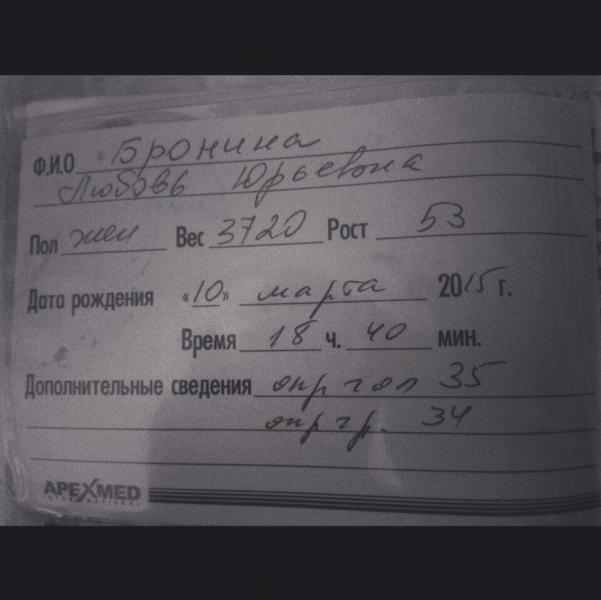 Ф.И.О Бронина
Любовь Юрьевна
Пол жен Вес 3720 Рост 53
Дата рождения «10» марта 2015 г.
Время 18 ч. 40 мин.
Дополнительные сведения окр гол 35
окр гр. 34
APEXMED
INTERNATIONAL